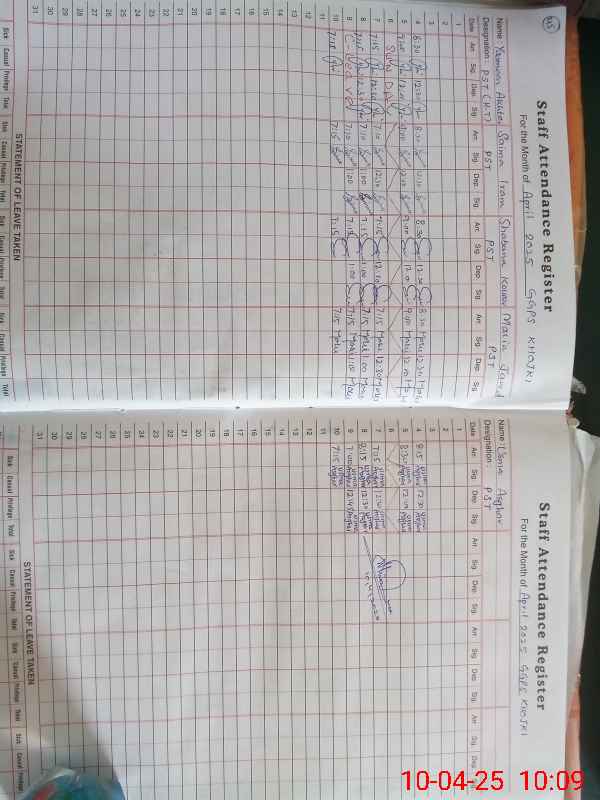 Staff Attendance Register
For the Month of April 2025 GGPS KHOJKI
Name: Yasmeen Akhter Saima Iram Shabana Kousar Maria
Designation: PST (H.T) PST PST PST
Date Arr. Sig. Dep. Sig. Arr. Sig. Dep. Sig. Arr. Sig. Dep. Sig. Arr. Sig. Dep. Sig.
1
2
3
4 8:30 12:30 8:30 12:30 8:30 12:30 8:30 12:30
5 9:00 12:00 9:00 12:00 9:00 9:00
6 SUN DAY
7 7:15 12:30 7:10 12:30 7:15 12:30 7:15 12:30
8 7:15 12:30 7:10 1:00 7:15 1:00 7:15 1:00
9 7:10 1:00 7:15 1:00 7:15 1:00
10 7:10 7:15 7:15 7:15
11
12
13
14
15
16
17
18
19
20
21
22
23
24
25
26
27
28
29
30
31
STATEMENT OF LEAVE TAKEN
Sick Casual Privilege Total Sick Casual Privilege Total Sick Casual Privilege Total Sick Casual Privilege Total
Staff Attendance Register
For the Month of April 2025 GGPS KHOJKI
Name: Uzma Asghar
Designation: PST
Date Arr. Sig. Dep. Sig. Arr. Sig. Dep. Sig. Arr. Sig. Dep. Sig. Arr. Sig. Dep. Sig.
1
2
3
4 8:15 Uzma Asghar 12:30 Uzma Asghar
5 8:30 Uzma Asghar Uzma Asghar
6
7 Uzma Asghar 12:30 Uzma Asghar
8 Uzma Asghar 12:30 Uzma Asghar
9 Uzma Asghar 12:45 Uzma Asghar
10 7:15 Uzma Asghar
11
12
13
14
15
16
17
18
19
20
21
22
23
24
25
26
27
28
29
30
31
STATEMENT OF LEAVE TAKEN
Sick Casual Privilege Total Sick Casual Privilege Total Sick Casual Privilege Total Sick Casual Privilege
10-04-25 10:09